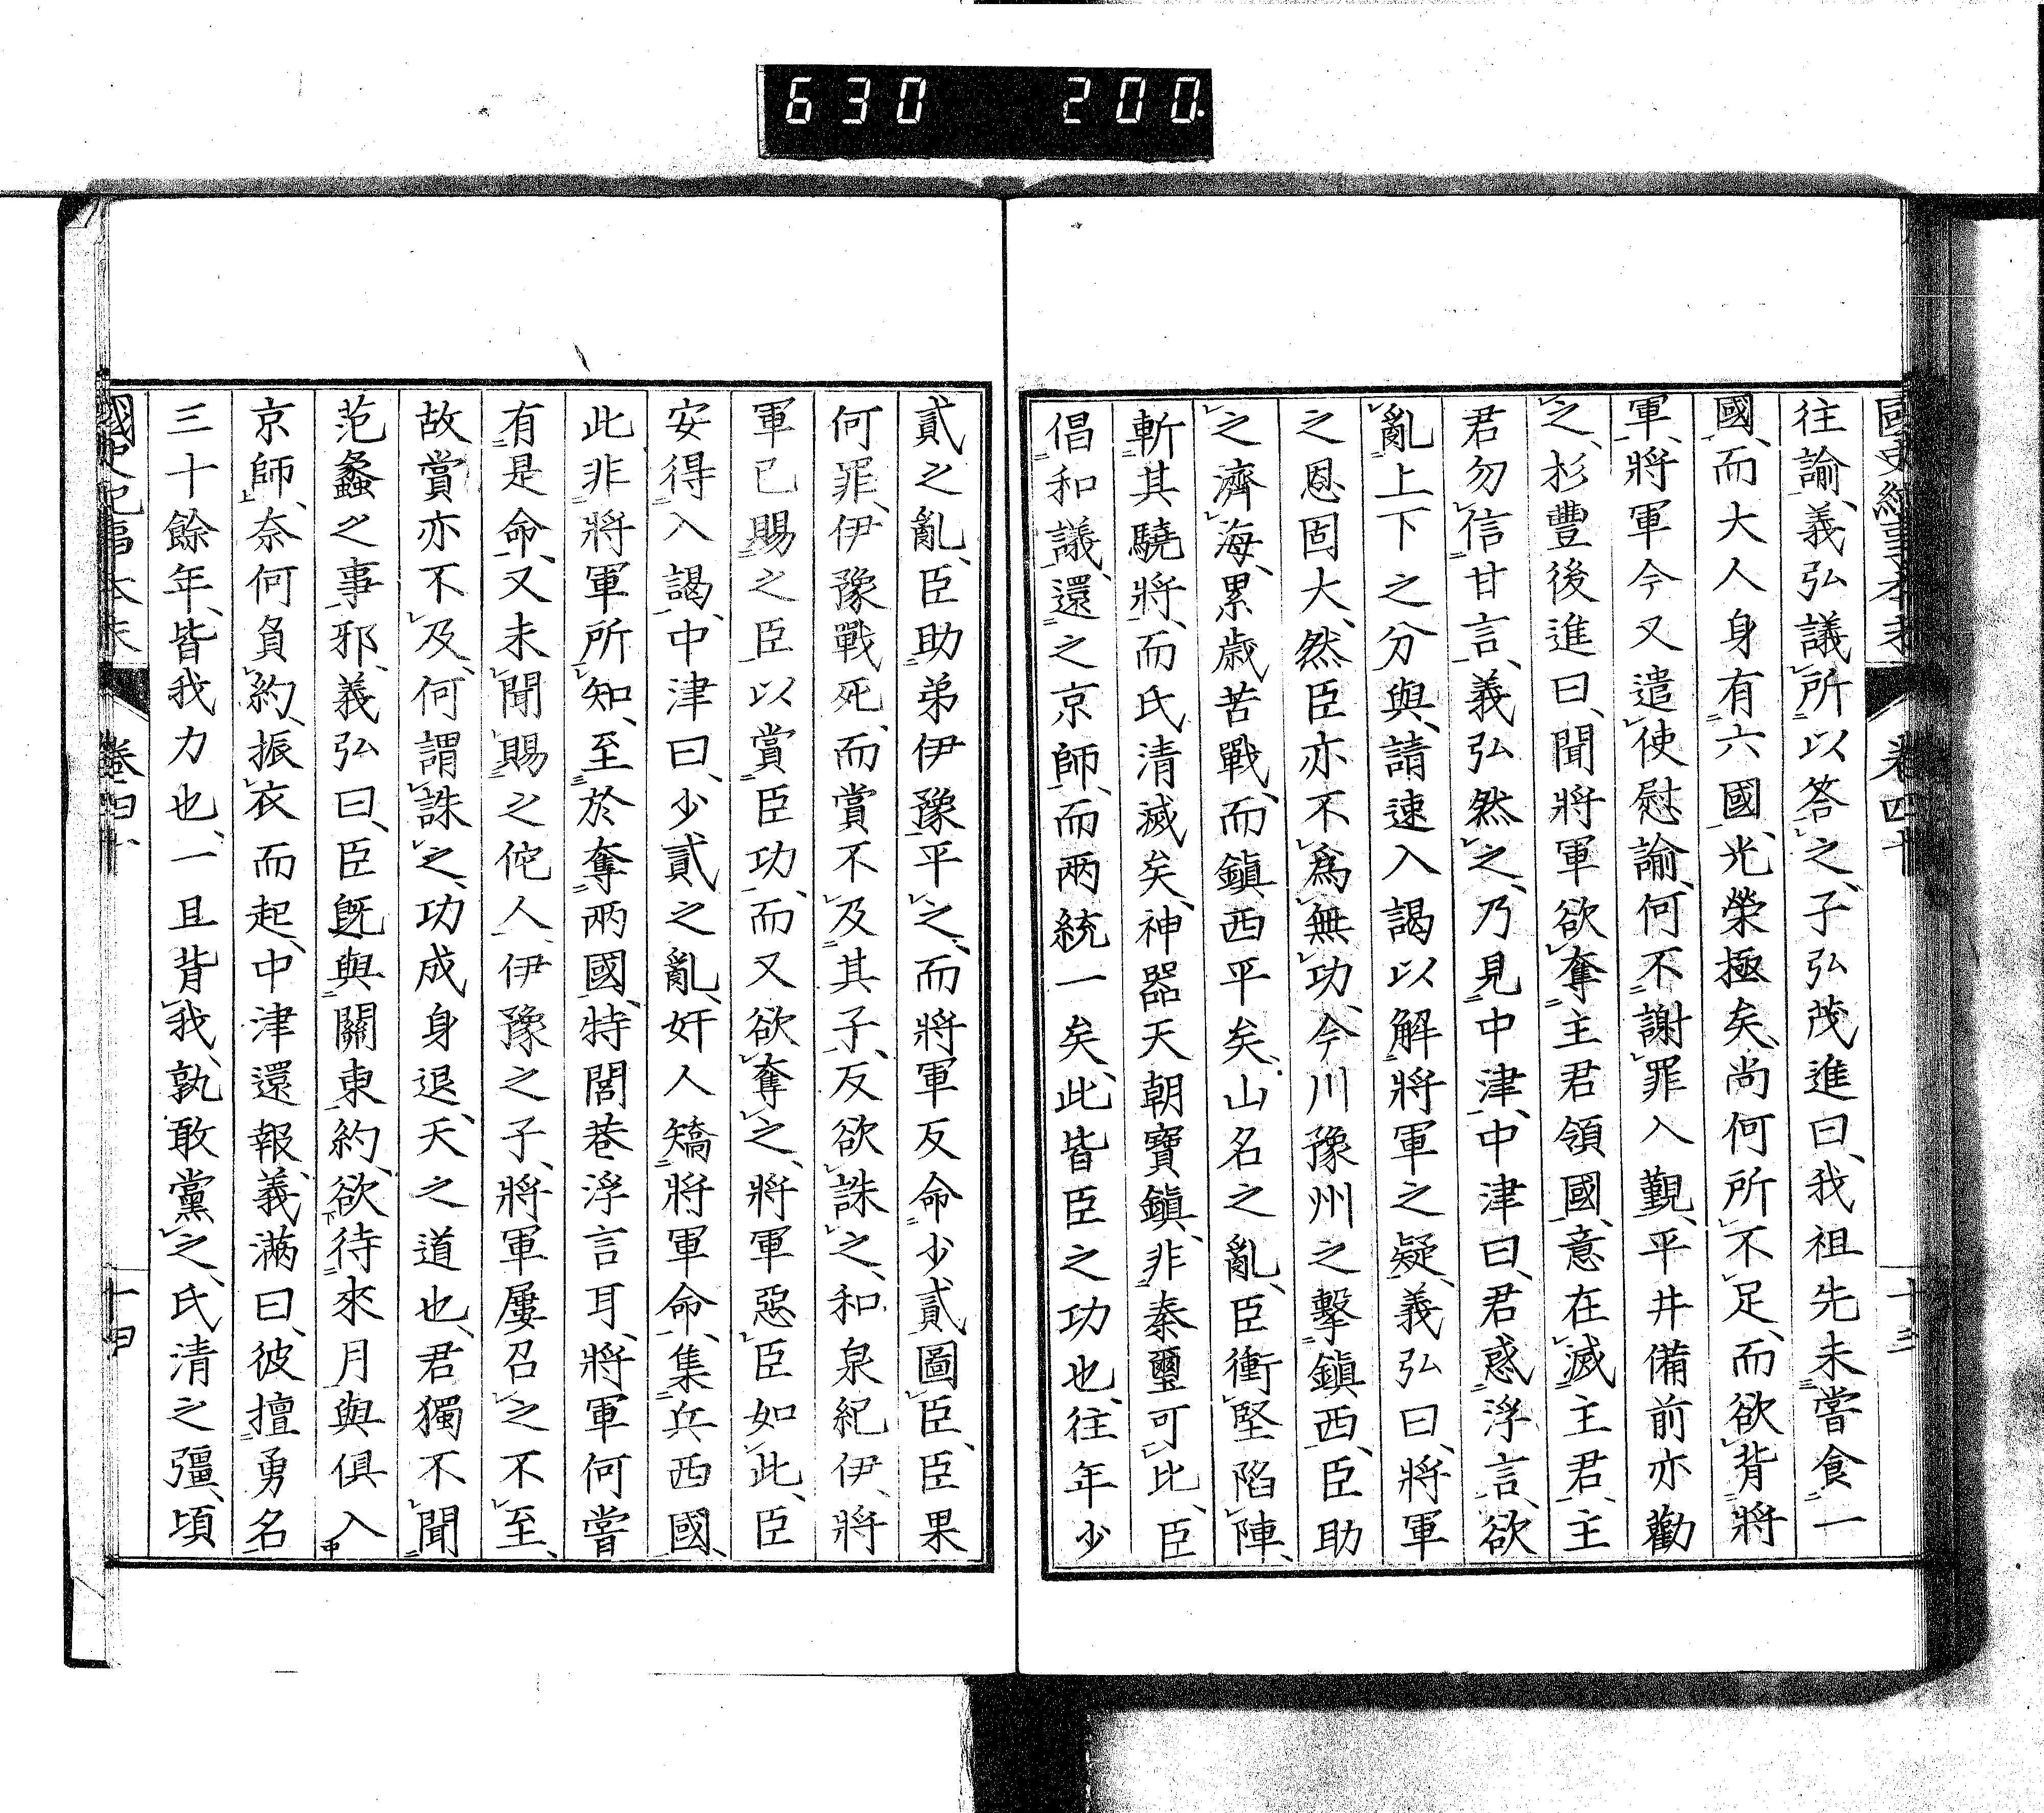 630 200.
往諭、義弘議所以答之、子弘茂進曰、我祖先未嘗食一
國、而大人身有六國、光榮極矣、尚何所不足、而欲背將
軍、將軍今又遣使慰諭、何不謝罪入覲、平井備前亦勸
之、杉豐後進曰、聞將軍欲奪主君領國、意在滅主君、主
君勿信甘言、義弘然之、乃見中津、中津曰、君惑浮言、欲
亂上下之分與、請速入謁以解將軍之疑、義弘曰、將軍
之恩固大、然臣亦不爲無功、今川豫州之擊鎮西、臣助
之濟海、累歲苦戰、而鎮西平矣、山名之亂、臣衝堅陷陣、
斬其驍將、而氏清滅矣、神器天朝寶鎮、非秦璽可比、臣
倡和議、還之京師、而兩統一矣、此皆臣之功也、往年少
貳之亂、臣助弟伊豫平之、而將軍反命少貳圖臣、臣果
何罪、伊豫戰死、而賞不及其子、反欲誅之、和泉紀伊、將
軍已賜之臣以賞臣功、而又欲奪之、將軍惡臣如此、臣
安得入謁、中津曰、少貳之亂、奸人矯將軍命、集兵西國、
此非將軍所知、至於奪兩國、特閭巷浮言耳、將軍何嘗
有是命、又未聞賜之佗人、伊豫之子、將軍屢召之不至、
故賞亦不及、何謂誅之、功成身退、天之道也、君獨不聞
范蠡之事邪、義弘曰、臣既與關東約、欲待來月與俱入
京師、奈何負約、振衣而起、中津還報、義滿曰、彼擅勇名
三十餘年、皆我力也、一旦背我、孰敢黨之、氏清之彊、頃
國史紀事本末 卷四十